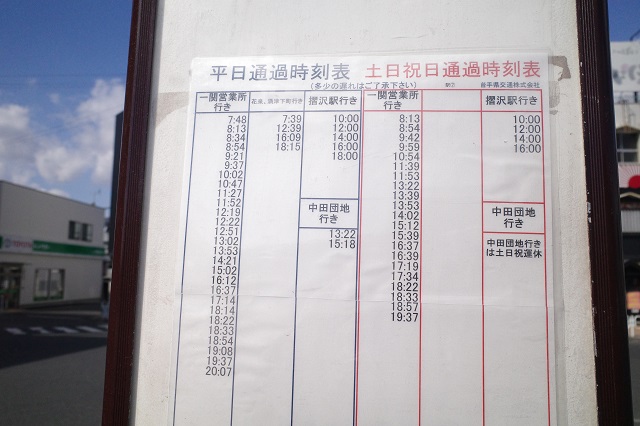 平日通過時刻表 土日祝日通過時刻表
(多少の遅れはご了承下さい) 岩手県交通株式会社
一関営業所
行き
7:48
8:13
8:34
8:54
9:21
9:37
10:02
10:47
11:27
11:52
12:19
12:22
12:51
13:02
13:53
14:21
15:02
16:12
16:37
17:14
18:14
18:22
18:33
18:54
19:08
19:37
20:07
7:39
12:39
16:09
18:15
摺沢駅行き
10:00
12:00
14:00
16:00
18:00
中田団地
行き
13:22
15:18
一関営業所
行き
8:13
8:54
9:42
9:59
10:54
11:39
11:53
13:22
13:39
13:53
14:02
15:12
15:39
16:37
16:39
17:19
17:34
18:22
18:33
18:57
19:37
摺沢駅行き
10:00
12:00
14:00
16:00
中田団地
行き
中田団地行き
は土日祝運休